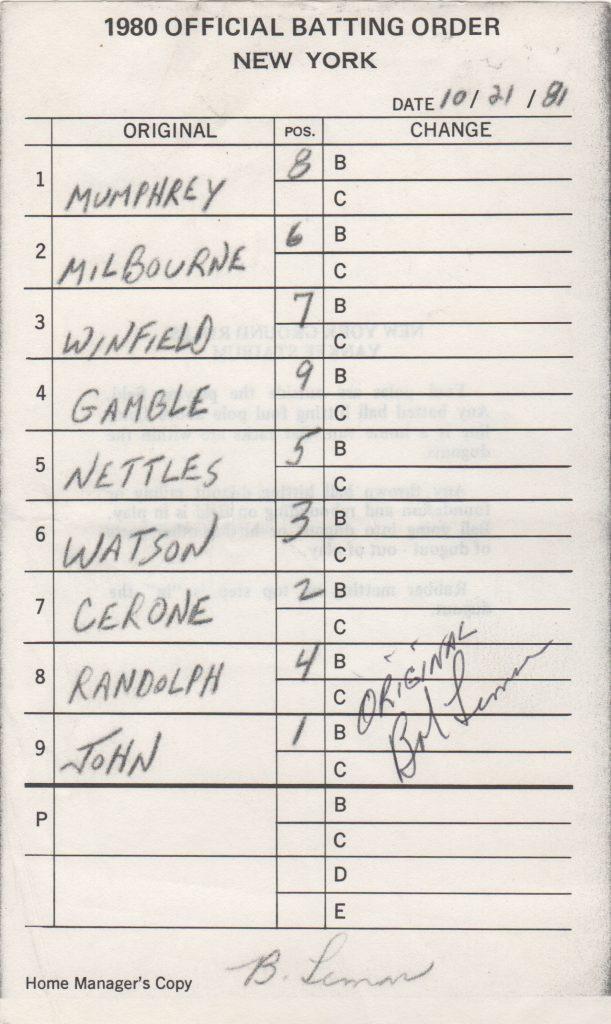 1980 OFFICIAL BATTING ORDER
NEW YORK
DATE 10/21/81
ORIGINAL POS. CHANGE
1 MUMPHREY 8 B
C
2 MILBOURNE 6 B
C
3 WINFIELD 7 B
C
4 GAMBLE 9 B
C
5 NETTLES 5 B
C
6 WATSON 3 B
C
7 CERONE 2 B
C
8 RANDOLPH 4 B
C
ORIGINAL
Bob Lemon
9 JOHN 1 B
C
P B
C
D
E
Home Manager's Copy B. Lemon